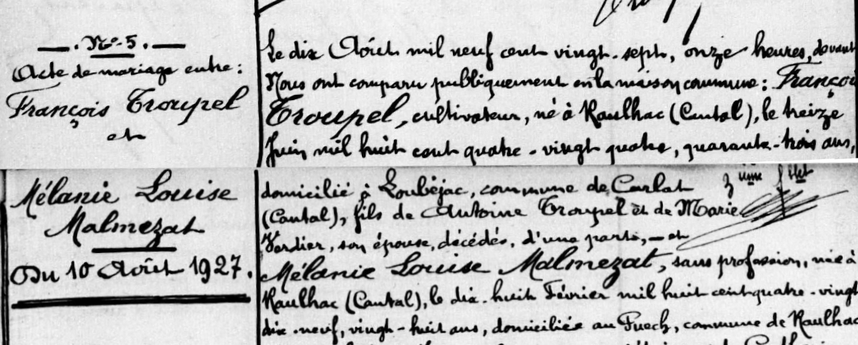 N° 5.
Acte de mariage entre:
François Troupel
et
Mélanie Louise
Malmezat
Du 10 Août 1927.
Le dix Août mil neuf cent vingt-sept, onze heures, devant
Nous ont comparu publiquement en la maison commune: François
Troupel, cultivateur, né à Raulhac (Cantal), le treize
Juin mil huit cent quatre-vingt quatre, quarante-trois ans,
domicilié à Loubéjac, commune de Carlat
(Cantal), fils de Antoine Troupel et de Marie
Verdier, son épouse, décédés, d'une part, et
Mélanie Louise Malmezat, sans profession, née à
Raulhac (Cantal), le dix-huit Février mil huit cent quatre-vingt
dix-neuf, vingt-huit ans, domiciliée au Puech, commune de Raulhac